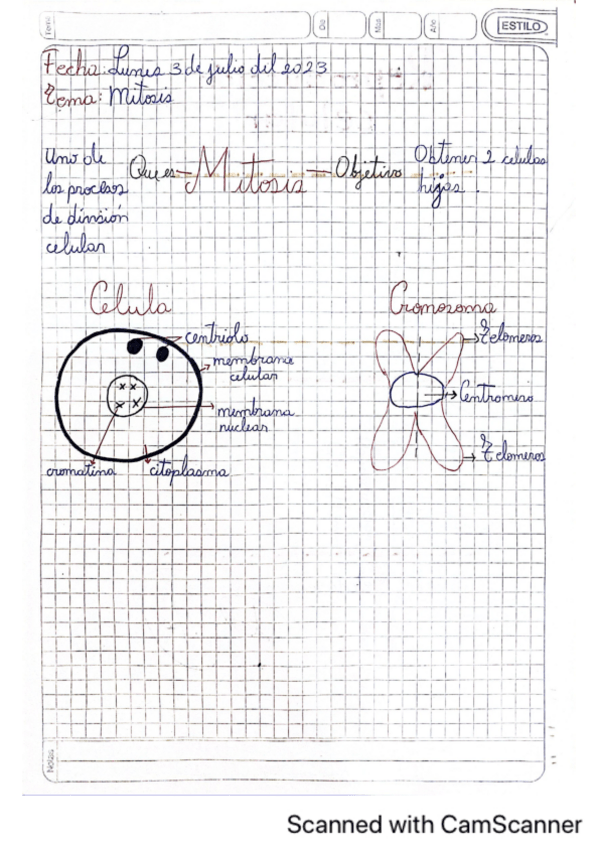 Tema:
Día
Mes
Año
ESTILO
Fecha: Lunes 3 de julio del 2023
Tema: Mitosis
Uno de
los procesos
de división
celular
Que es — Mitosis — Objetivo
Obtener 2 celulas
hijas.
Celula
centriolo
membrana
celular
membrana
nuclear
cromatina
citoplasma
Cromosoma
Telomeros
Centromero
Telomeros
Notas
Scanned with CamScanner